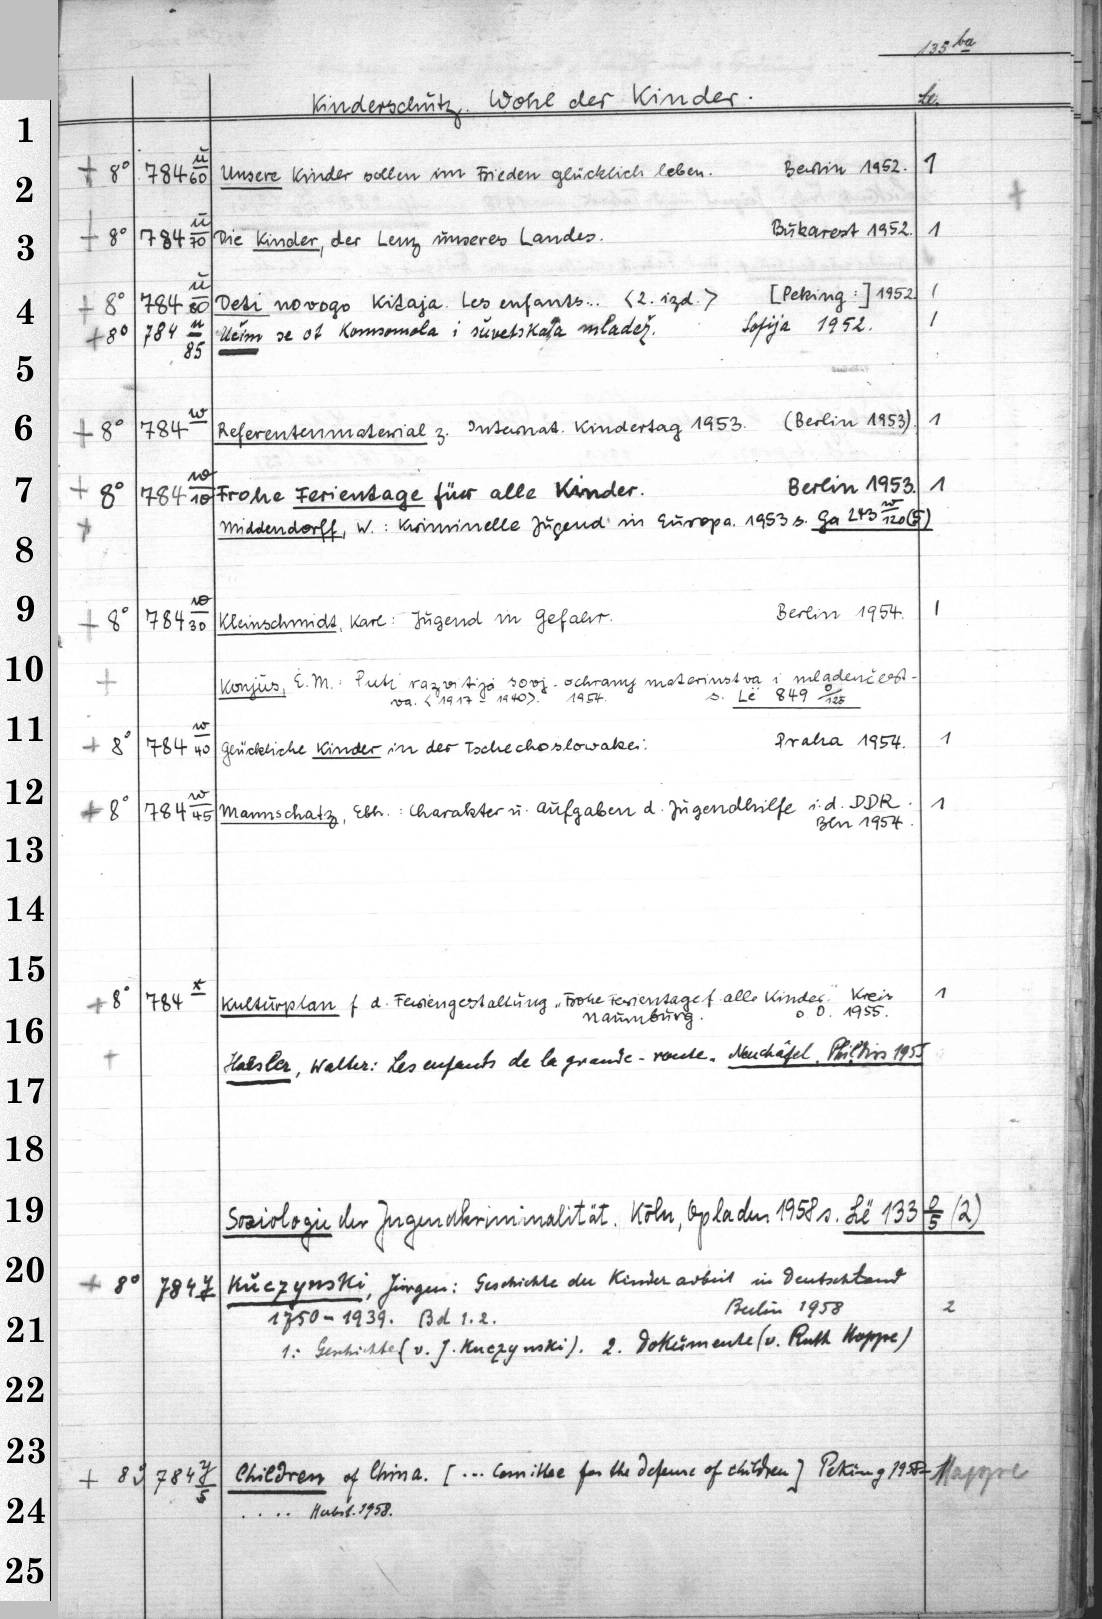 135 ba
Kinderschutz. Wohl der Kinder. Le.
1
+ 8° 784 u/60 Unsere Kinder sollen im Frieden glücklich leben. Berlin 1952. 1
2
+ 8° 784 u/70 Die Kinder, der Lenz unseres Landes. Bukarest 1952. 1
3
+ 8° 784 u/80 Deti novogo Kitaja. Les enfants... <2. izd.> [Peking:] 1952 1
4
+ 8° 784 u/85 Učim se ot Komsomola i suvetskata mladež. Sofija 1952. 1
5
6
+ 8° 784 w Referentenmaterial z. Internat. Kindertag 1953. (Berlin 1953). 1
7
+ 8° 784 w/10 Frohe Ferientage für alle Kinder. Berlin 1953. 1
+ Middendorff, W.: Kriminelle Jugend in Europa. 1953 s. Ga 243 w/120 (5)
8
9
+ 8° 784 w/30 Kleinschmidt, Karl: Jugend in Gefahr. Berlin 1954. 1
10
+ Konjus, E.M.: Puti razvitija sovj. ochrany materinstva i mladenčest-
va. <1917-1940>. 1954. s. Lë 849 o/125
11
+ 8° 784 w/40 Glückliche Kinder in der Tschechoslowakei. Praha 1954. 1
12
+ 8° 784 w/45 Mannschatz, Ebh.: Charakter u. Aufgaben d. Jugendhilfe i. d. DDR. 1
Bln 1954.
13
14
15
+ 8° 784 x Kulturplan f. d. Feriengestaltung "Frohe Ferientage f. alle Kinder" Kreis 1
Naumburg. o. O. 1955.
16
+ Haesler, Walter: Les enfants de la grande-route. Neuchâtel, 1955
17
18
19
Soziologie der Jugendkriminalität. Köln, Opladen 1958 s. Lë 133 l/5 (2)
20
+ 8° 784 y Kuczynski, Jürgen: Geschichte der Kinderarbeit in Deutschland
1750-1939. Bd 1.2. Berlin 1958 2
21
1: Geschichte (v. J. Kuczynski). 2. Dokumente (v. Ruth Hoppe)
22
23
+ 8° 784 y/5 Children of China. [... Comittee for the defense of children] Peking 1958- Mappe
24
.... Herbst. 1958.
25